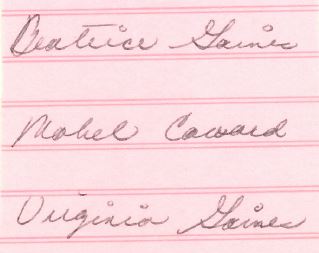 Beatrice Gaines
Mabel Coward
Virginia Gaines